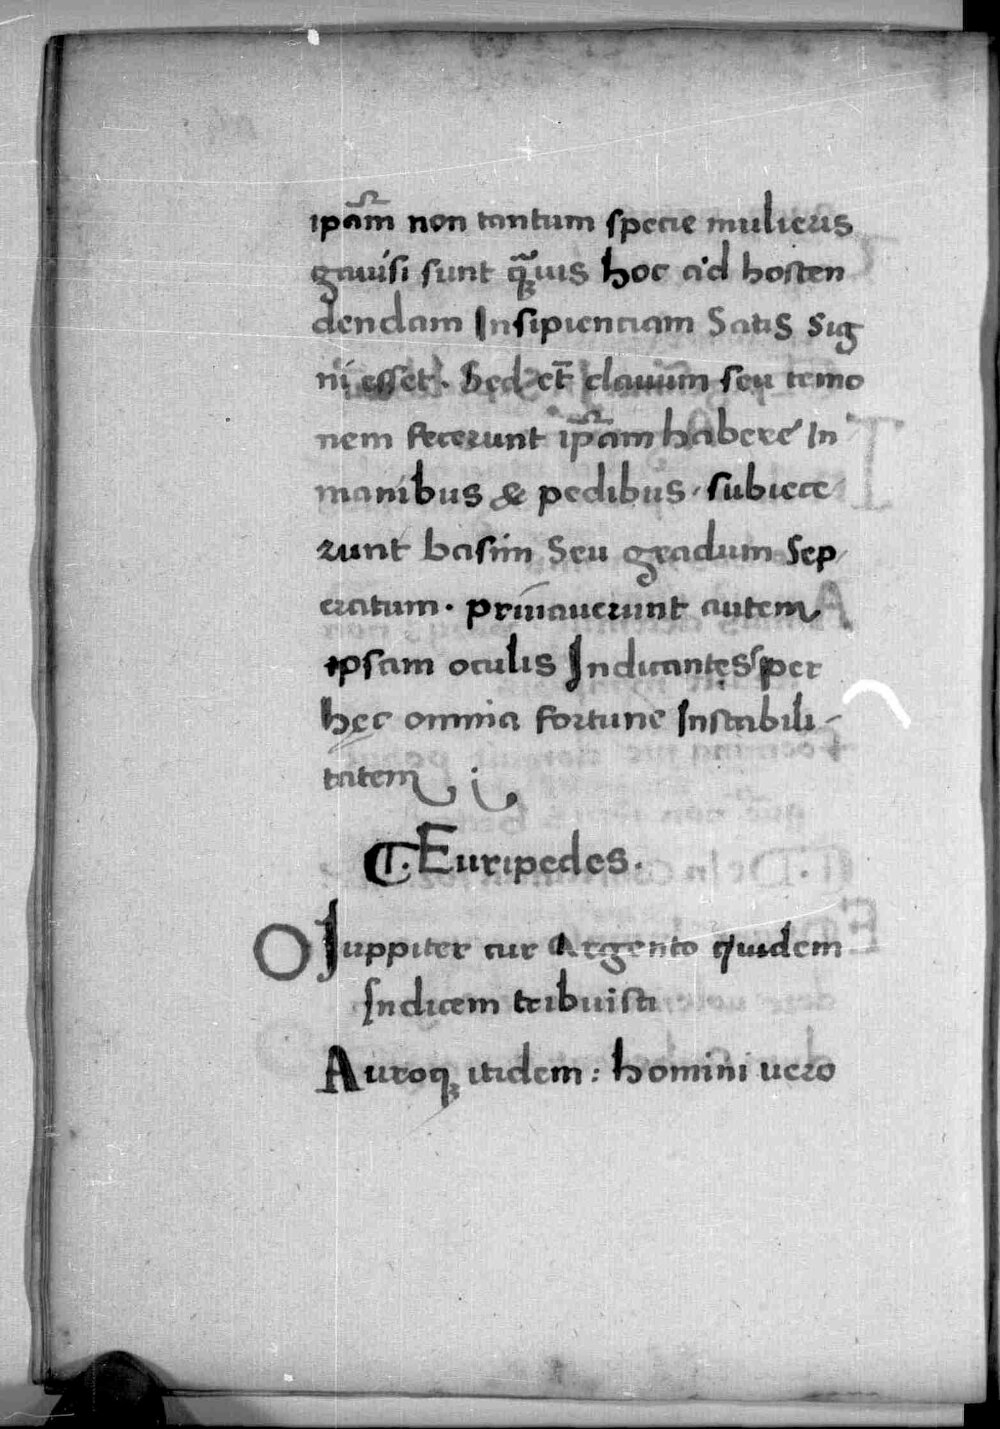 ip̃am non tantum specie mulieris
gauisi sunt q̃ꝫuis hoc ad hosten
dendam Insipientiam Satis Sig
ni esset. Sed et̄ clauum seu temo
nem fecerunt ip̃am habere In
manibus & pedibus subiece
runt basim Seu gradum Sep
eratum. priuauerunt autem
ipsam oculis Indicantes per
hęc omnia fortune Instabili-
tatem
¶. Euripedes.
O Iuppiter cur Argento quidem
Indicem tribuisti
Auroqꝫ itidem: homini uero